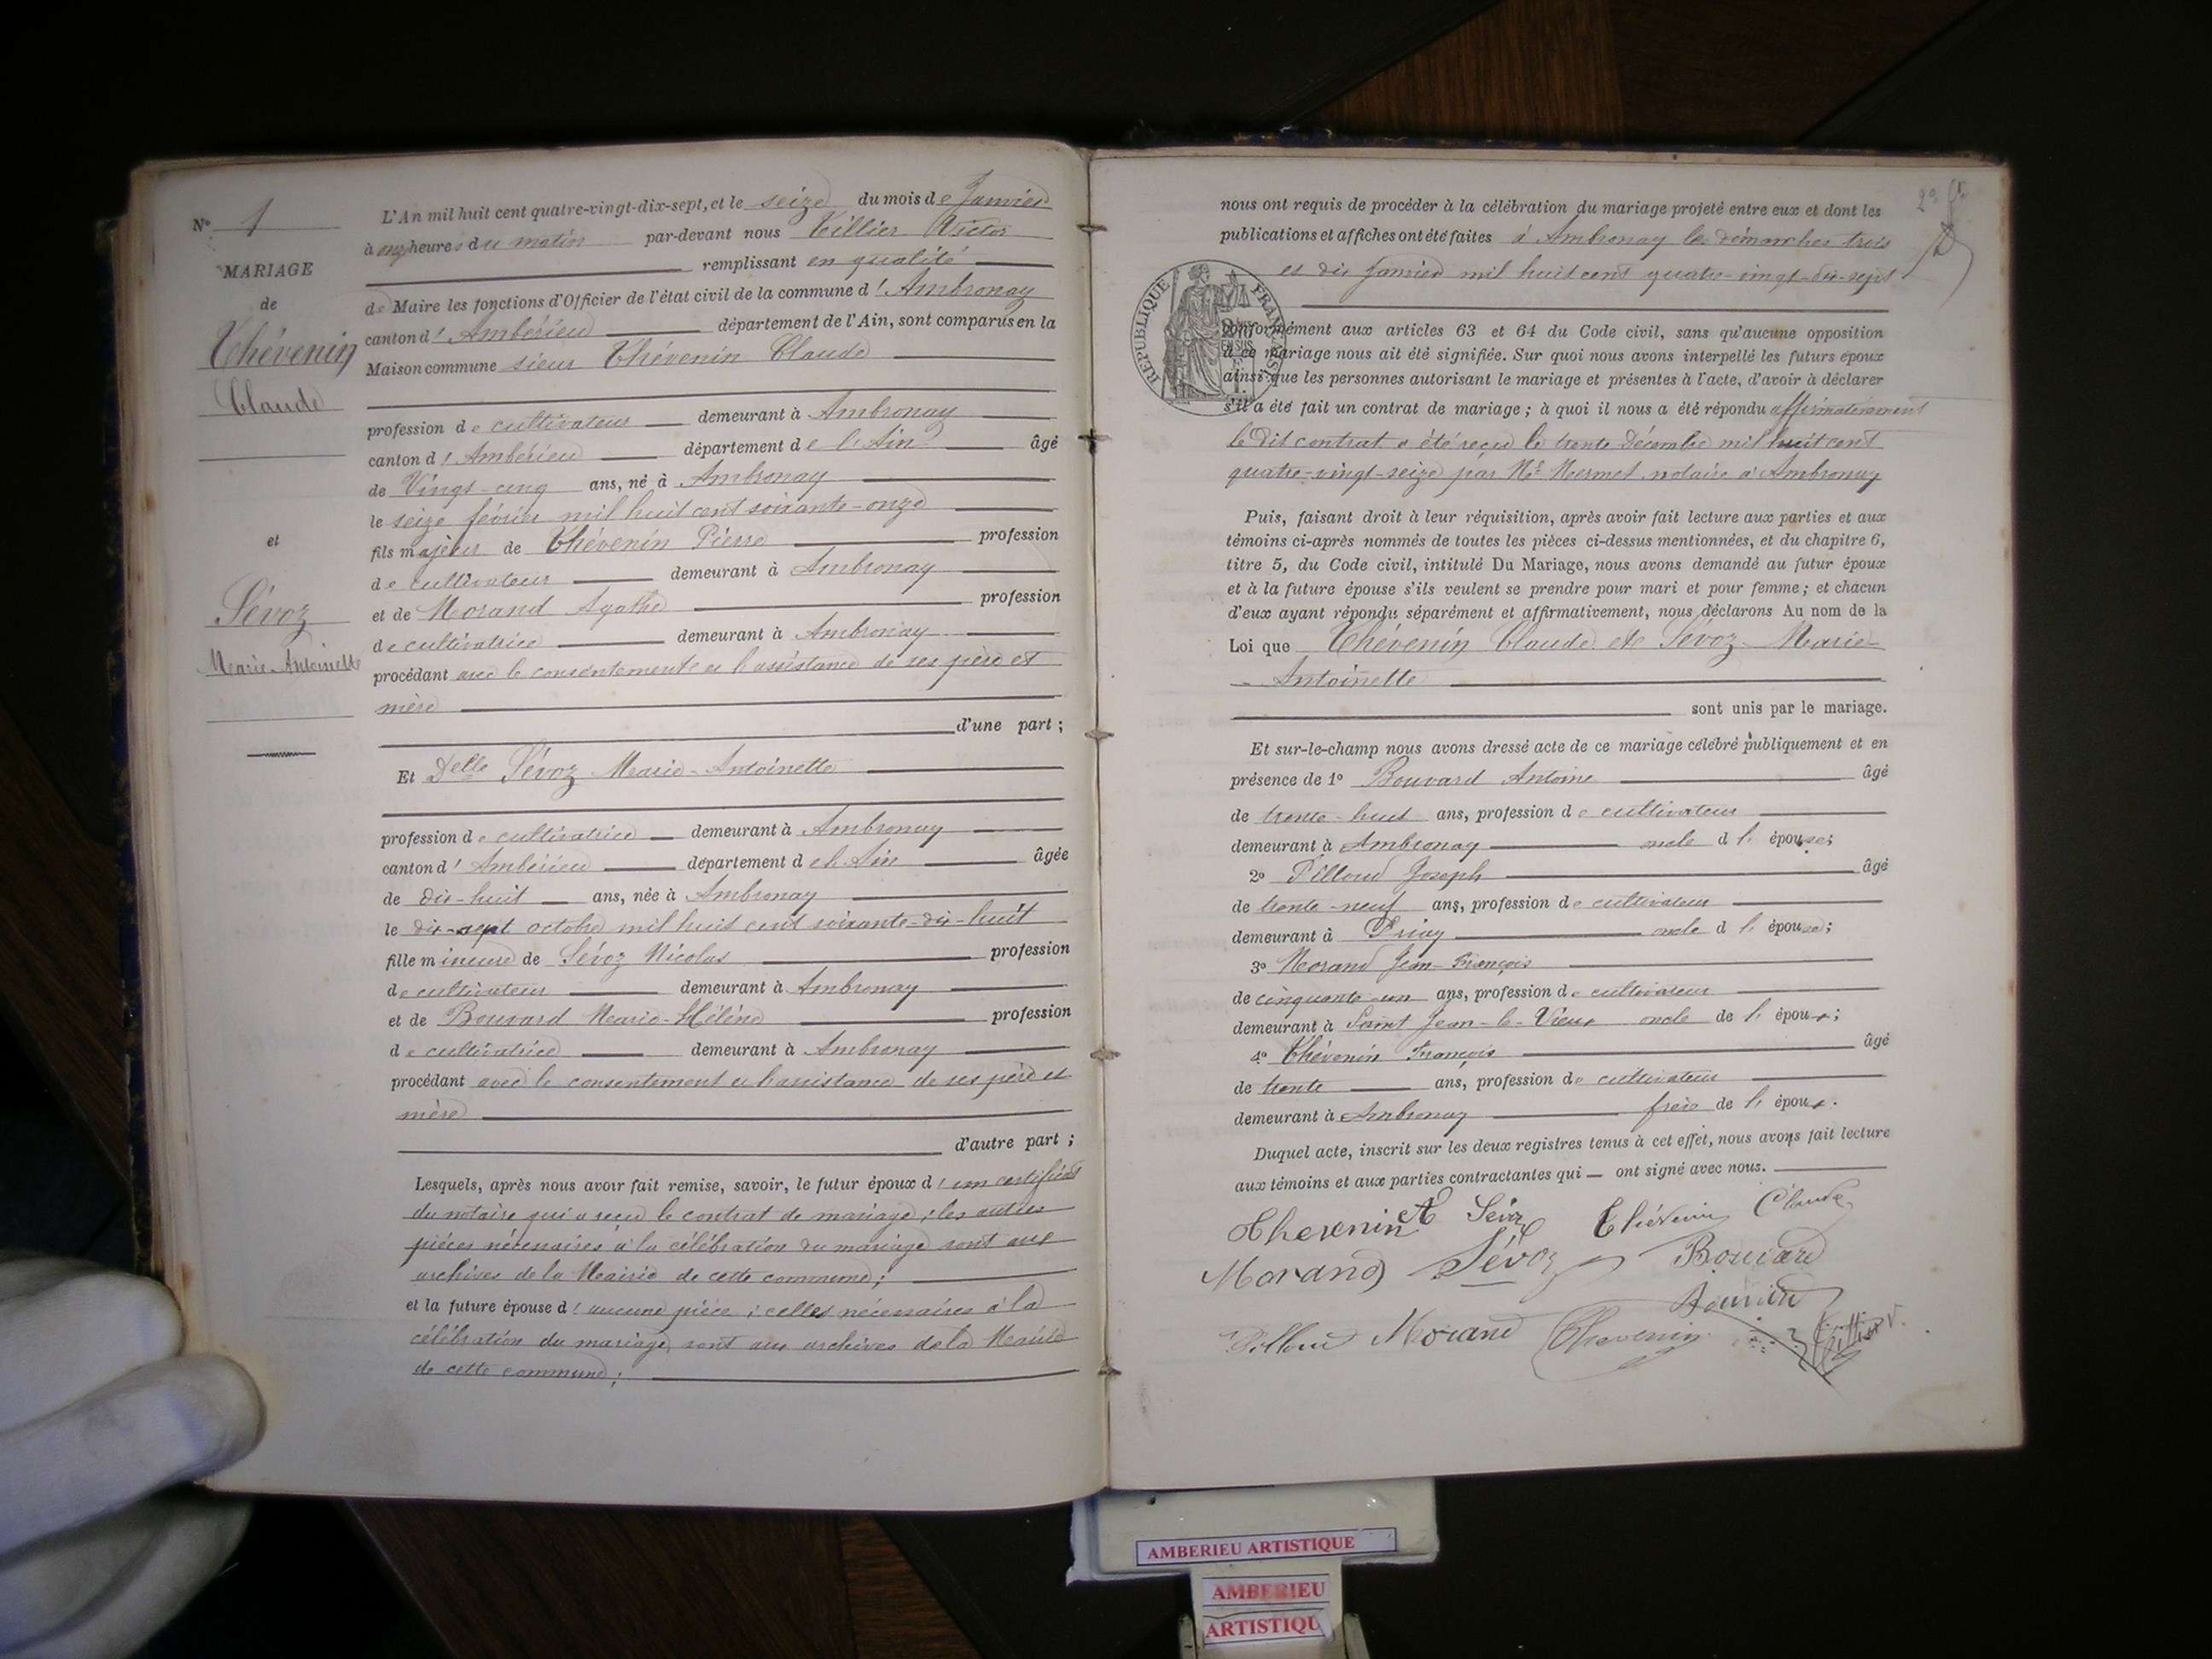 N° 1
MARIAGE
de
Thévenin
Claude
et
Sévoz
Marie-Antoinette
L'An mil huit cent quatre-vingt-dix-sept, et le seize du mois de Janvier
à onze heures du matin par-devant nous Tillier Victor
remplissant en qualité
de Maire les fonctions d'Officier de l'état civil de la commune d'Ambronay
canton d'Ambérieu département de l'Ain, sont comparus en la
Maison commune sieur Thévenin Claude
profession de cultivateur demeurant à Ambronay
canton d'Ambérieu département de l'Ain âgé
de Vingt-cinq ans, né à Ambronay
le seize février mil huit cent soixante-onze
fils majeur de Thévenin Pierre profession
de cultivateur demeurant à Ambronay
et de Morand Agathe profession
de cultivatrice demeurant à Ambronay
procédant avec le consentement et l'assistance de ses père et
mère
d'une part ;
Et Delle Sévoz Marie-Antoinette
profession de cultivatrice demeurant à Ambronay
canton d'Ambérieu département de l'Ain âgée
de dix-huit ans, née à Ambronay
le dix-sept octobre mil huit cent soixante-dix-huit
fille mineure de Sévoz Nicolas profession
de cultivateur demeurant à Ambronay
et de Bouvard Marie-Hélène profession
de cultivatrice demeurant à Ambronay
procédant avec le consentement et l'assistance de ses père et
mère
d'autre part ;
Lesquels, après nous avoir fait remise, savoir, le futur époux d'un certificat
du notaire qui a reçu le contrat de mariage ; les autres
pièces nécessaires à la célébration du mariage sont aux
archives de la Mairie de cette commune ;
et la future épouse d'aucune pièce ; celles nécessaires à la
célébration du mariage sont aux archives de la Mairie
de cette commune ;
nous ont requis de procéder à la célébration du mariage projeté entre eux et dont les
publications et affiches ont été faites à Ambronay les dimanches trois
et dix Janvier mil huit cent quatre-vingt-dix-sept
RÉPUBLIQUE FRANÇAISE
conformément aux articles 63 et 64 du Code civil, sans qu'aucune opposition
à ce mariage nous ait été signifiée. Sur quoi nous avons interpellé les futurs époux
ainsi que les personnes autorisant le mariage et présentes à l'acte, d'avoir à déclarer
s'il a été fait un contrat de mariage ; à quoi il nous a été répondu affirmativement
le dit contrat a été reçu le trente Décembre mil huit cent
quatre-vingt-seize par Me Mermet notaire à Ambronay
Puis, faisant droit à leur réquisition, après avoir fait lecture aux parties et aux
témoins ci-après nommés de toutes les pièces ci-dessus mentionnées, et du chapitre 6,
titre 5, du Code civil, intitulé Du Mariage, nous avons demandé au futur époux
et à la future épouse s'ils veulent se prendre pour mari et pour femme ; et chacun
d'eux ayant répondu séparément et affirmativement, nous déclarons Au nom de la
Loi que Thévenin Claude et Sévoz Marie-
Antoinette
sont unis par le mariage.
Et sur-le-champ nous avons dressé acte de ce mariage célébré publiquement et en
présence de 1° Bouvard Antoine âgé
de trente-huit ans, profession de cultivateur
demeurant à Ambronay oncle d l' épouse ;
2° Pilloud Joseph âgé
de trente-neuf ans, profession de cultivateur
demeurant à Priay oncle d l' épouse ;
3° Morand Jean-François
de cinquante-un ans, profession de cultivateur
demeurant à Saint Jean-le-Vieux oncle de l' époux ;
4° Thévenin François âgé
de trente ans, profession de cultivateur
demeurant à Ambronay frère de l' époux.
Duquel acte, inscrit sur les deux registres tenus à cet effet, nous avons fait lecture
aux témoins et aux parties contractantes qui — ont signé avec nous.
Thevenin A Sévoz Thévenin Claude
Morand Sévoz Bouvard
Bouvard
Pilloud Morand Thevenin Tillier V.
AMBERIEU ARTISTIQUE
AMBERIEU
ARTISTIQU